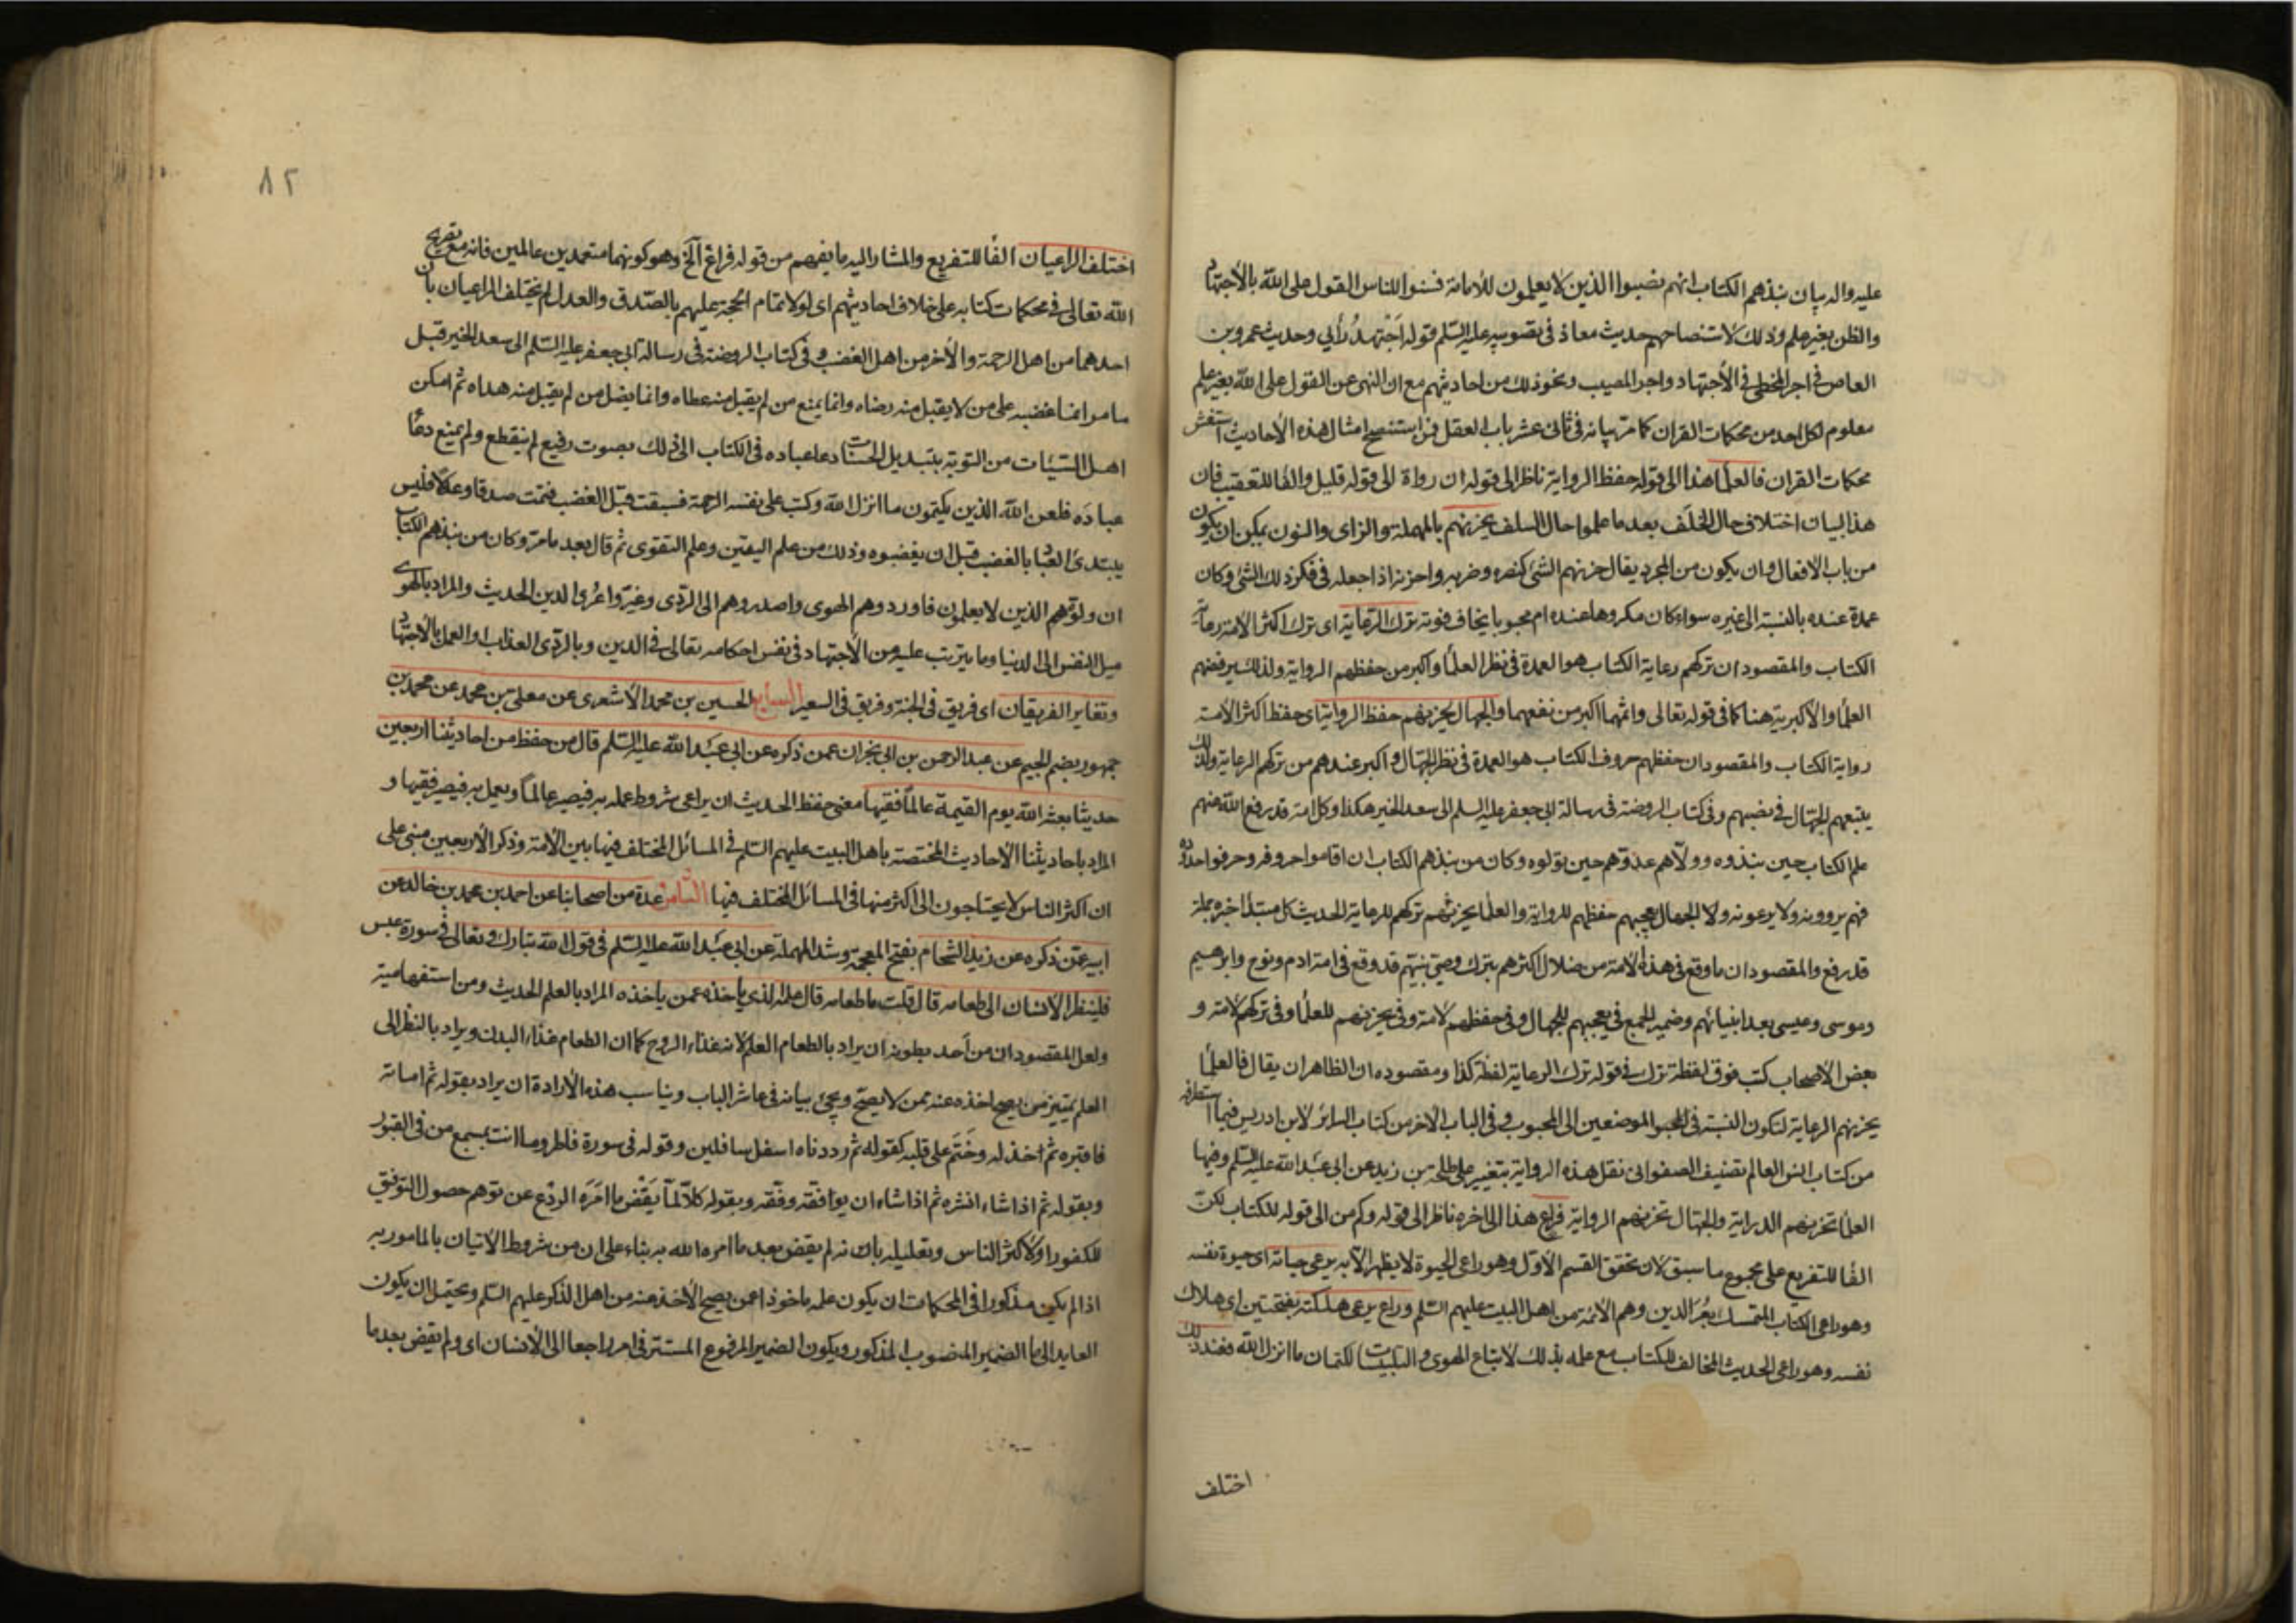 عليه واله بيان نبذهم الكتاب انهم نصبوا الذين لا يعلمون للأمامة فسنوا للناس القول على الله بالأجتهاد
والظن بغير علم وذلك لاستنصاحهم حديث معاذ فى تصويبه عليه السّلم قوله اَجْتهدُ رأيي وحديث عمرو بن
العاص فى اجر المخطى فى الأجتهاد واجر المصيب ونحو ذلك من احاديثهم مع ان النهى عن القول على الله بغير علم
معلوم لكل احد من محكمات القران كما مر بيانه فى ثانى عشر باب العقل فمن استنصح امثال هذه الأحاديث استغش
محكمات القران فالعلما هذا الى قوله حفظ الرواية ناظر الى قوله ان رواة الى قوله قليل والفا للتعقيب فان
هذا لبيان اختلاف حال الخلَف بعد ما علموا حال السلف يحزنهم بالمهملة والزاى والنون يمكن ان يكون
من باب الافعال وان يكون من المجرد يقال حزنهم الشئ كنصره وضربه واحزنه اذا جعله فى فكر ذلك الشئ وكان
عمدة عنده بالنسبة الى غيره سواء كان مكروها عنده ام محبوبا يخاف فوته ترك الرعاية اى ترك اكثر الأمة رعاية
الكتاب والمقصود ان تركهم رعاية الكتاب هو العمدة فى نظر العلما واكبر من حفظهم الرواية ولذلك يرفضهم
العلما والأكبرية هنا كما فى قوله تعالى واثمهما اكبر من نفعهما والجهال يحزنهم حفظ الرواية اى حفظ اكثر الأمة
رواية الكتاب والمقصود ان حفظهم حروف الكتاب هو العمدة فى نظر الجهال واكبر عندهم من تركهم الرعاية ولذلك
يتبعهم الجهال فى نصبهم وفى كتاب الروضة فى رسالة ابى جعفر عليه السلم الى سعد الخير هكذا وكل امة قد رفع الله عنهم
علم الكتاب حين نبذوه وولّاهم عدوّهم حين تولوه وكان من نبذهم الكتاب ان اقاموا حروفه وحرفوا حدوده
فهم يروونه ولا يرعونه ولا الجهال يعجبهم حفظهم للرواية والعلما يحزنهم تركهم للرعاية الحديث كل مبتدأ خبره جملة
قد رفع والمقصود ان ما وقع فى هذه الأمة من ضلال اكثرهم بترك وصىّ نبيّهم قد وقع فى امة ادم ونوح وابرهيم
وموسى وعيسى بعد انبيائهم وضمير الجمع فى يعجبهم للجهال وفى حفظهم لأمة وفى يحزنهم للعلما وفى تركهم لأمة و
بعض الأصحاب كتب فوق لفظة ترك فى قوله ترك الرعاية لفظة كذا ومقصوده ان الظاهر ان يقال فالعلما
يحزنهم الرعاية لتكون النسبة فى الموضعين الى المحبوب وفى الباب الاخر من كتاب السرائر لابن ادريس فيما استطرفه
من كتاب انس العالم تصنيف الصفوانى نقل هذه الرواية بتغيير على طلحة بن زيد عن ابى عبد الله عليه السّلم وفيها
العلما تحزنهم الدراية والجهال تحزنهم الرواية فراع هذا الى اخره ناظر الى قوله وكم من الى قوله للكتاب لكن
الفا للتفريع على مجموع ما سبق لان تحقق القسم الأوّل وهو راعى الحيوة لا يظهر الّا به يرعى حياته اى حيوة نفسه
وهو راعى الكتاب المتمسك بغُرّ الدين وهم الأئمة من اهل البيت عليهم السّلم وراع يرعى هلكته بفتحتين اى هلاك
نفسه وهو راعى الحديث المخالف للكتاب مع علمه بذلك لاتباع الهوى و لكتمان ما انزل الله فعند ذلك
اختلف
٨٢
اختلف الراعيان الفا للتفريع والمشار اليه ما يفهم من قوله فراع آلخ وهو كونهما متعمدين عالمين فانه مع تصريح
الله تعالى فى محكمات كتابه على خلاف احاديثهم اى لولا تمام الحجة عليهم بالصّدق والعدل لم يختلف الراعيان بأن
احدهما من اهل الرحمة والأخر من اهل الغضب وفى كتاب الروضة فى رسالة ابى جعفر عليه السّلم الى سعد الخير قبل
ما مر انما غضبه على من لا يقبل منه رضاه وانما يمنع من لم يقبل منه عطاه وانما يضل من لم يقبل منه هداه ثم امكن
اهل السّيّئات من التوبة بتبديل الحسنات دعا عباده فى الكتاب الى ذلك بصوت رفيع لم ينقطع ولم يمنع دعاء
عباده فلعن الله الذين يكتمون ما انزل الله وكتب على نفسه الرحمة فسبقت قبل الغضب فتمت صدقا وعدلاً فليس
يبتدئ العباد بالغضب قبل ان يغضبوه وذلك من علم اليقين وعلم التقوى ثم قال بعد ما مر وكان من نبذهم الكتاب
ان ولوّهم الذين لا يعلمون فاوردوهم الهوى واصدروهم الى الردى وغيّروا عُرى الدين الحديث والمراد بالهوى
ميل النفس الى الدنيا وما يترتب عليه من الأجتهاد فى نفس احكامه تعالى فى الدين وبالردى العذاب او العمل بالأجتهاد
وتغاير الفريقان اى فريق فى الجنة وفريق فى السعير السابع الحسين بن محمد الأشعرى عن معلى بن محمد عن محمد بن
جمهور بضم الجيم عن عبد الرحمن بن ابى نجران عمن ذكره عن ابى عَبد الله عليه السّلم قال من حفظ من احاديثنا اربعين
حديثا بعثه الله يوم القيمة عالماً فقيها معنى حفظ الحديث ان يراعى شروط عمله به فيصير عالماً ويعمل به فيصير فقيها و
المراد باحاديثنا الأحاديث المختصة بأهل البيت عليهم السّلم فى المسائل المختلف فيها بين الأمة وذكر الأربعين مبنى على
ان اكثر الناس لا يحتاجون الى اكثر منها فى المسائل المختلف فيها الثامن عدة من اصحابنا عن احمد بن محمد بن خالد عن
ابيه عمّن ذكره عن زيد الشحام بفتح المعجمة وشد المهملة عن ابى عَبد الله عليه السّلم فى قول الله تبارك وتعالى فى سورة عبس
فلينظر الأنسان الى طعامه قال قلت ما طعامه قال علمه الذى يأخذه عمن يأخذه المراد بالعلم الحديث ومن استفهامية
ولعل المقصود ان من أحد بطونه ان يراد بالطعام العلم لانه غذاء الروح كما ان الطعام غذاء البدن ويراد بالنظر الى
العلم تمييز من يصح اخذه عنه ممن لا يصحّ ويجئ بيانه فى عاشر الباب ويناسب هذه الأرادة ان يراد بقوله ثم اماته
فاقبره ثم اخذ له وخَتَم على قلبه كقوله ثم رددناه اسفل سافلين وقوله فى سورة فاطر وما انت بمسمع من فى القبور
وبقوله ثم اذا شاء انشره ثم اذا شاء ان يوافقه وفّقه وبقوله كلّا لمّا يَقْض ما اَمَرَه الردْع عن توهم حصول التوفيق
للكفور او لأكثر الناس وتعليله بانه لم يقض بعد ما امره الله به بناء على ان من شروط الأتيان بالمامور به
اذا لم يكن مذكورا فى المحكمات ان يكون علمه ماخوذا عمن يصح الأخذ عنه من اهل الذكر عليهم السّلم ويحتمل ان يكون
العايد الى ما الضمير المنصوب المذكور ويكون الضمير المرفوع المستتر فى امر راجعا الى الأنسان اى ولم يقض بعد ما